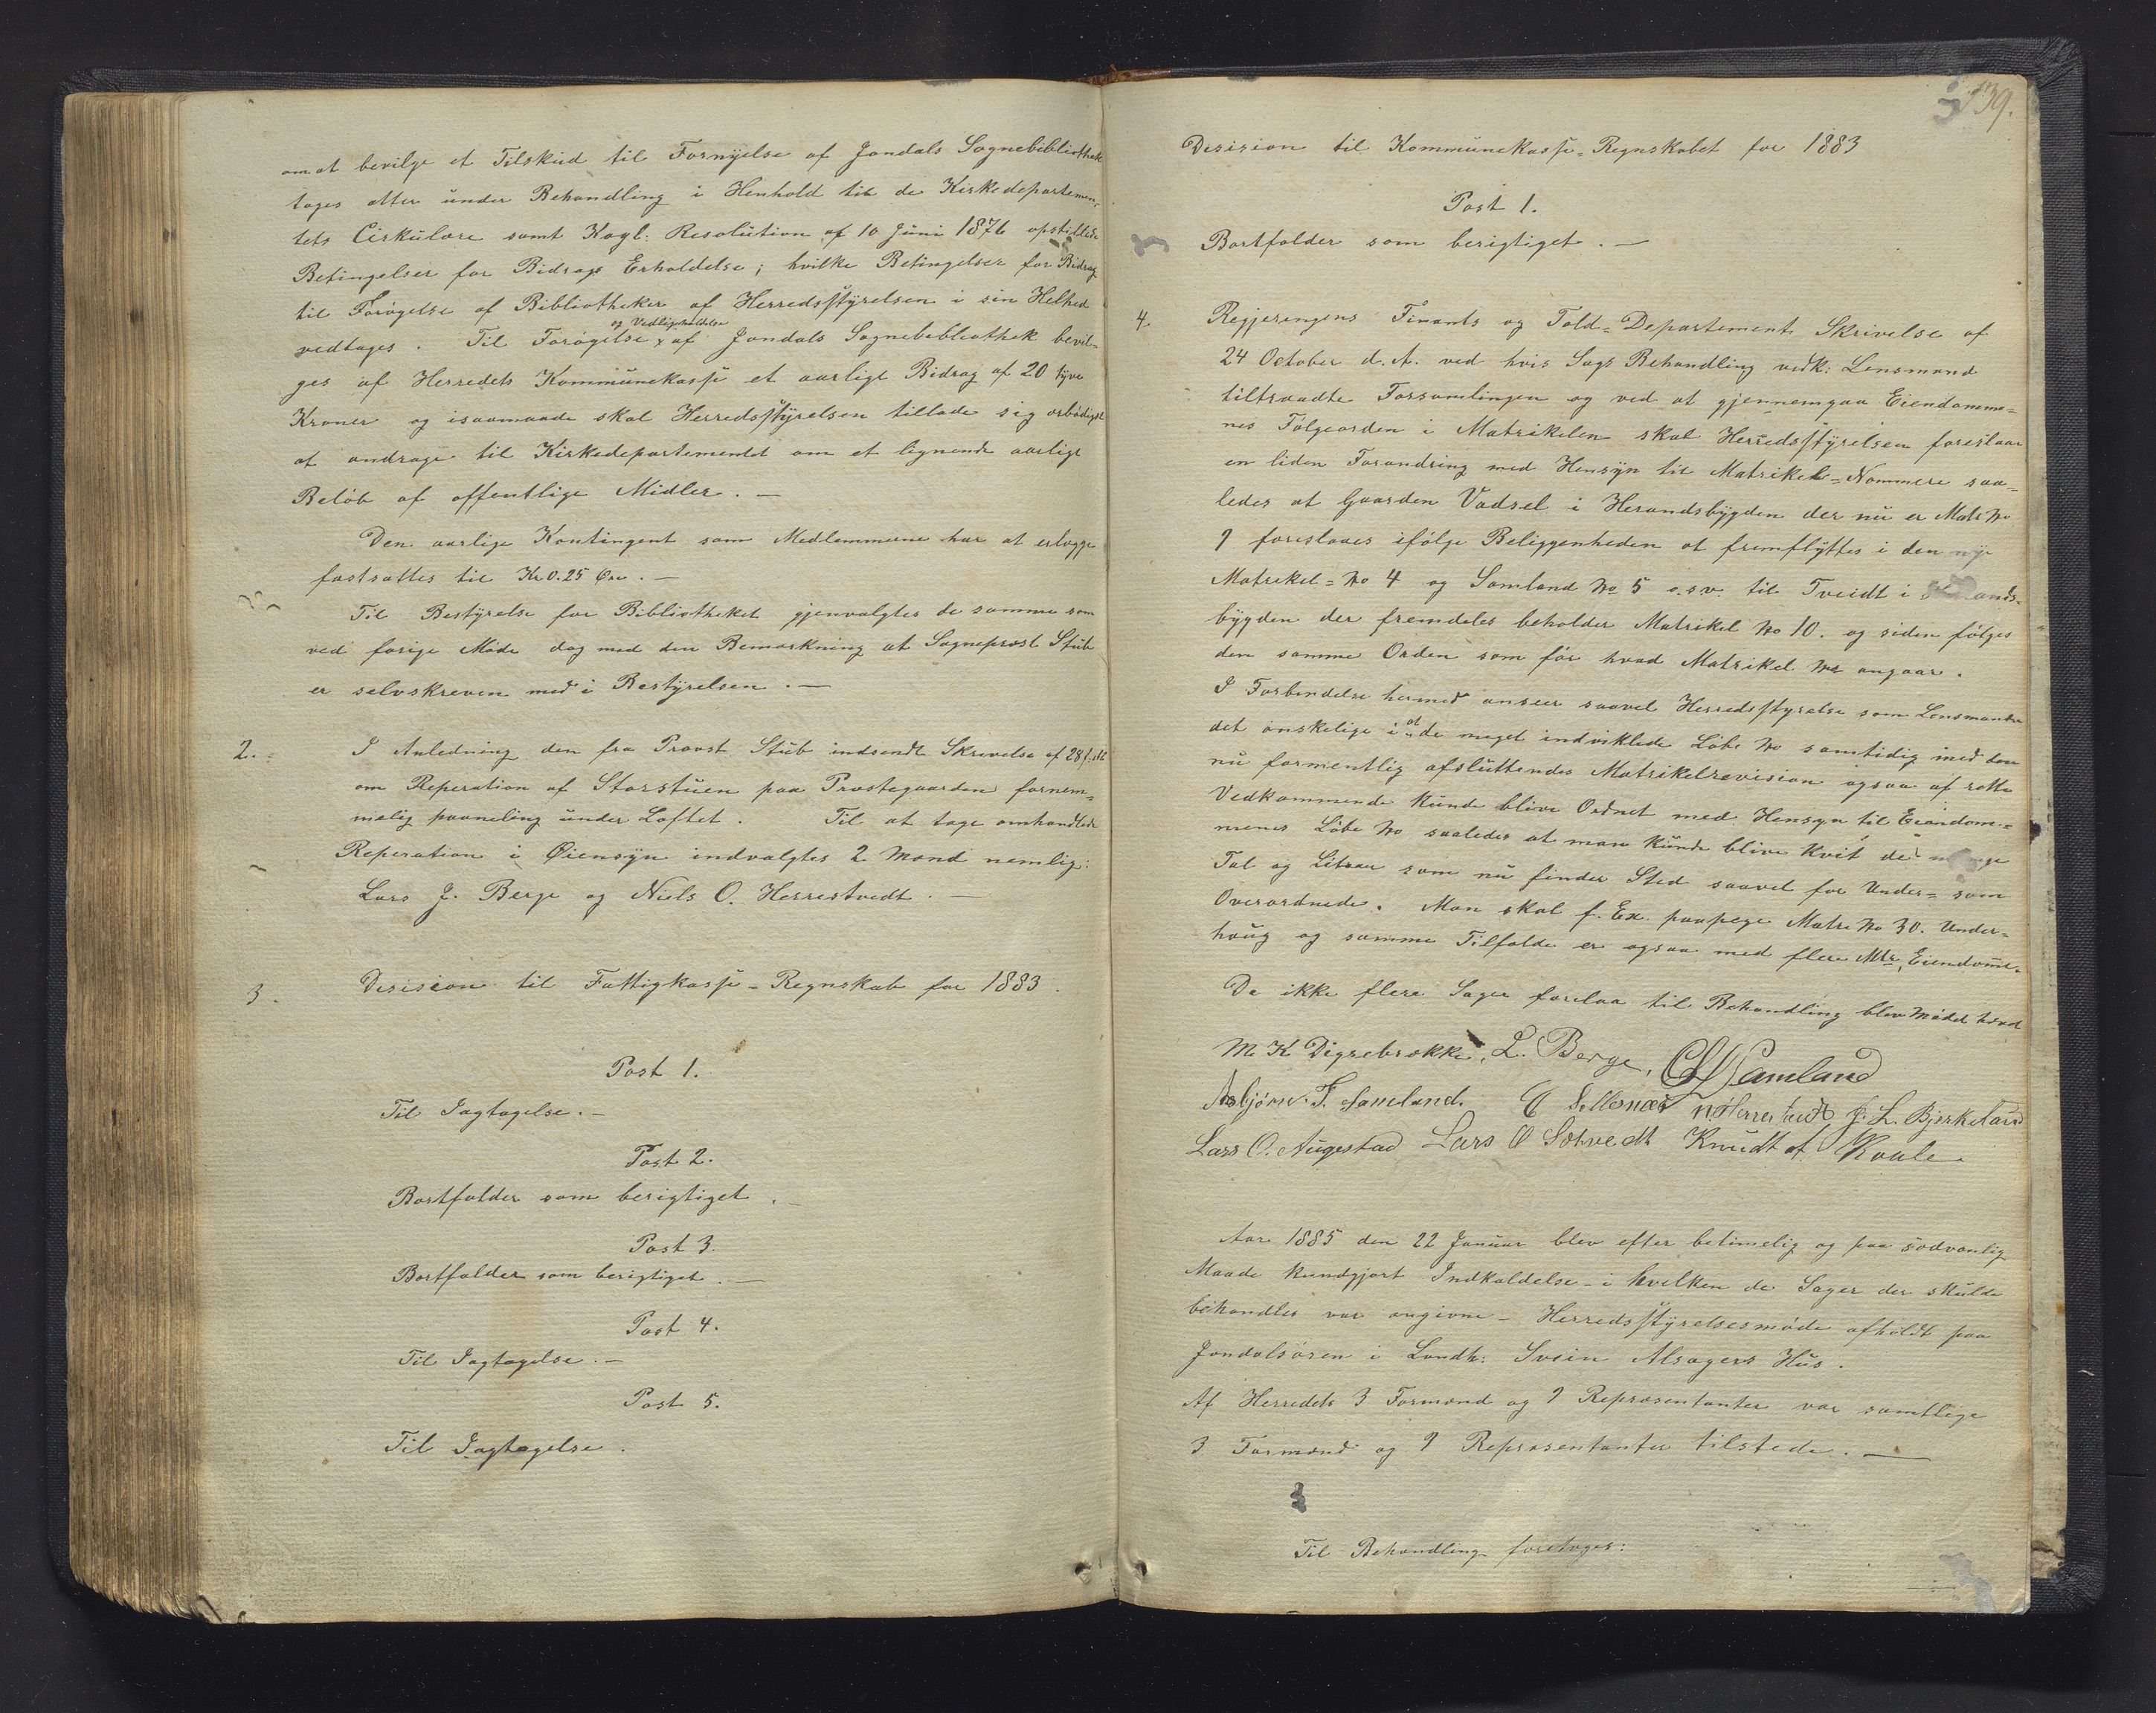 om at bevilge et Tilskud til Fornyelse af Jondals Sognebibliothek
tages atter under Behandling i Henhold til de Kirkedepartemen-
tets Cirkulære samt Kogl: Resolution af 10 Juni 1876 opstillede
Betingelser for Bidrags Erholdelse; hvilke Betingelser for Bidrag
til Forøgelse af Bibliotheker af Herredsstyrelsen i sin Helhed
vedtages. Til Forøgelse og Vedligeholdelse af Jondals Sognebibliothek bevil-
ges af Herredets Kommunekasse et aarligt Bidrag af 20 tyve
Kroner og isaamaade skal Herredsstyrelsen tillade sig ærbødigst
at andrage til Kirkedepartementet om et lignende aarligt
Beløb af offentlige Midler. —
Den aarlige Kontingent som Medlemmerne har at erlægge
fastsættes til Kr 0.25 Øre. —
Til Bestyrelse for Bibliotheket gjenvalgtes de samme som
ved forige Møde dog med den Bemærkning at Sogneprest Stub
er selvskreven med i Bestyrelsen. —
2. I Anledning den fra Provst Stub indsendt Skrivelse af 28
om Reperation af Storstuen paa Prestegaarden fornem-
melig paaneling under Loftet. Til at tage omhandlede
Reperation i Øiensyn indvalgtes 2 Mænd nemlig:
Lars J. Berge og Niels O. Herrestvedt. —
3. Desision til Fattigkasse-Regnskab for 1883.
Post 1.
Til Iagtagelse. —
Post 2.
Bortfalder som berigtiget. —
Post 3.
Bortfalder som berigtiget. —
Post 4.
Til Iagtagelse. —
Post 5.
Til Iagtagelse.
139.
Desision til Kommunekasse-Regnskabet for 1883
Post 1.
Bortfalder som berigtiget. —
4. Regjeringens Finants og Told-Departement Skrivelse af
24 October d. A. ved hvis Sags Behandling vedk: Lensmand
tiltraadte Forsamlingen og ved at gjennemgaa Eiendomme-
nes Følgeorden i Matrikelen skal Herredsstyrelsen foreslaa
en liden Forandring med Hensyn til Matrikel-Nommere saa-
ledes at Gaarden Vadsel i Herandsbygden der nu er Matr No
9 foreslaaes ifølge Beliggenheden at fremflyttes i den nye
Matrikel-No 4 og Samland No 5 o.s.v. til Tveidt i Herands-
bygden der fremdeles beholder Matrikel No 10. og siden følges
den samme Orden som før hvad Matrikel No angaar.
I Forbindelse hermed anseer saavel Herredsstyrelse som Lensmanden
det ønskelige i at de meget indviklede Løbe No samtidig med den
nu formentlig afsluttendes Matrikelrevision ogsaa af rette
Vedkommende kunde blive Ordnet med Hensyn til Eiendom-
menes Løbe No saaledes at man kunde blive kvit de mange
Tal og Litraer som nu finder Sted saavel for Under- som
Overordnede. Man skal f. Ex. paapege Matr No 30. Under-
haug og samme Tilfælde er ogsaa med flere Mtr. Eiendomme.
Da ikke flere Sager forelaa til Behandling blev Mødet hævet
M K Digrebrekke, L. Berge, Samland
Asbjørn T. Samland. O Selsnæs N Herrestvedt J. L. Bjerkeland
Lars O. Augestad Lars O Solvedt Knudt Kvale
Aar 1885 den 22 Januar blev efter betimelig og paa sædvanlig
Maade kundgjort Indkaldelse – i hvilken de Sager der skulde
behandles var angivne – Herredsstyrelsesmøde afholdt paa
Jondalsøren i Landh: Svein Alsagers Hus.
Af Herredets 3 Formænd og 9 Repræsentanter var samtlige
3 Formænd og 9 Repræsentanter tilstede. —
Til Behandling foretoges: